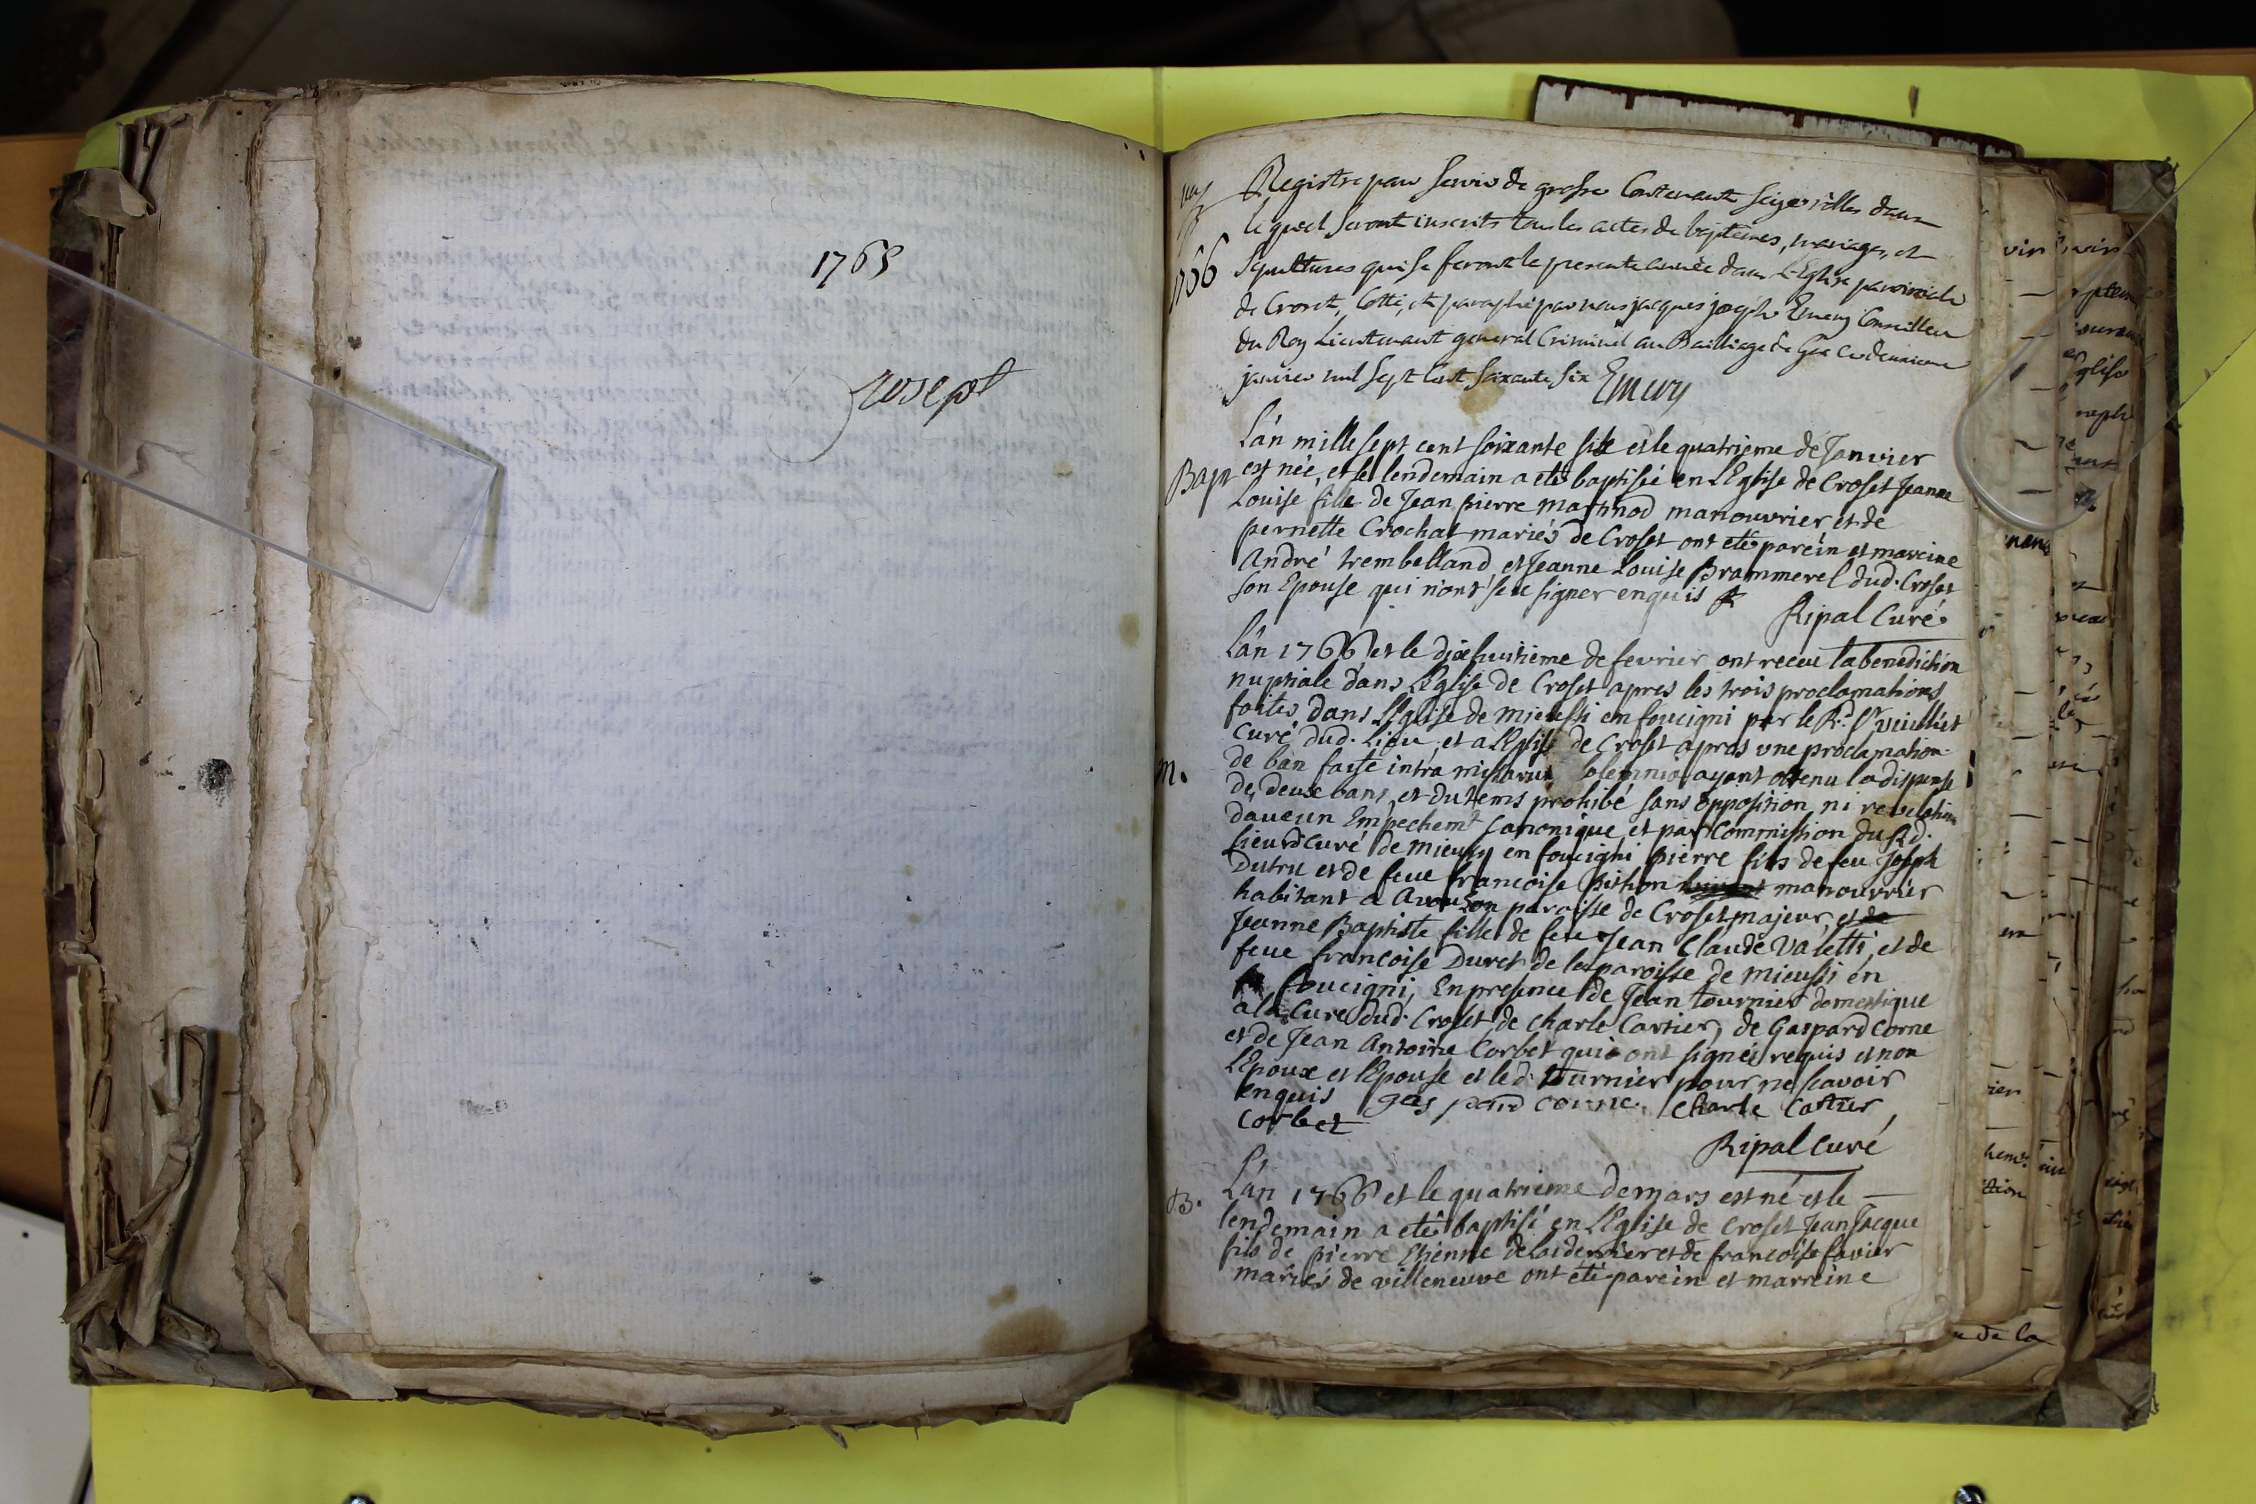 1765
Joseph
1766
Registre pour servir de grosse Contenant seize rolles dans
lequel seront inscrits tous les actes de baptêmes, mariages, et
Sepultures qui se feront la presente année dans L'Eglise paroissiale
de Crozet, Cotté, et paraphé par nous jacques joseph Emery Conseiller
du Roy Lieutenant general Criminel au Bailliage de Gex
janvier mil sept Cent soixante six Emery
Bapt
L'an mille sept cent soixante six et le quatrieme de Janvier
est née, et le lendemain a eté baptisée en L'Eglise de Croset Jeanne
Louise fille de Jean pierre Martinod manouvrier et de
pernette Crochat mariés de Croset ont eté parein et mareine
André trembelland et Jeanne Louise Brammerel dud. Croset
son Epouse qui n'ont sceu signer enquis
Ripal Curé.
L'an 1766 et le dixhuitieme de fevrier ont receu la benediction
nuptiale dans L'Eglise de Croset apres les trois proclamations
faites dans L'Eglise de Mieussi en foucigni par le Rd. Sr
Curé dud. Lieu, et a L'Eglise de Croset apres une proclamation
m.
de ban faite intra missarum solemnia ayant obtenu la dispense
de deux bans, et du tems prohibé sans opposition ni revelation
daucun Empechemt Canonique et par Commission du Rd.
sieur Curé de Mieussy en foucigni pierre fils de feu Joseph
Dutru et de feue francoise Pithon manouvrier
habitant a Avouson paroisse de Croset majeur, et de
Jeanne Baptiste fille de feu Jean Claude Valetti, et de
feue francoise Duret de la paroisse de Mieussi en
foucigni, En presence de Jean tournier domestique
a la Cure dud. Croset de Charle Cartier, de Gaspard Corne
et de Jean Antoine Corbet qui ont signés requis et non
L'Epoux et l'Epouse et led. tournier pour ne scavoir
enquis gaspard corne. Charle Cartier
Corbet
Ripal Curé
B.
L'an 1766 et le quatrieme de mars est né et le
lendemain a eté baptisé en L'Eglise de Croset Jean Jacque
fils de pierre Etienne delardernier et de francoise favier
mariés de villeneuve ont eté parein et marreine